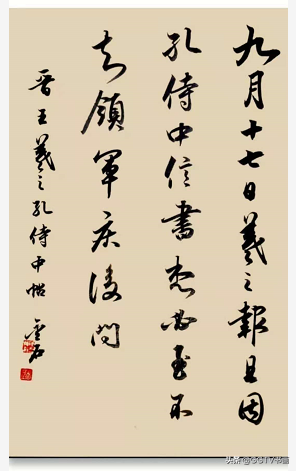 九月十七日羲之報且因
孔侍中信書想必至不
知領軍疾後問
晉王羲之孔侍中帖